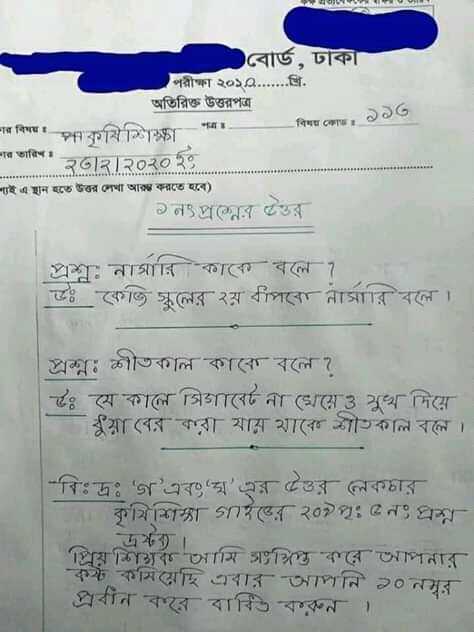 বোর্ড, ঢাকা
পরীক্ষা ২০২০.......খ্রি.
অতিরিক্ত উত্তরপত্র
বিষয় ঃ কৃষিশিক্ষা পত্র ঃ বিষয় কোড ঃ ১১৩
তারিখ ঃ ২৩/২/২০২০ইং
এ স্থান হতে উত্তর লেখা আরম্ভ করতে হবে)
১নং প্রশ্নের উত্তর
প্রশ্ন: নার্সারি কাকে বলে ?
উঃ কেজি স্কুলের ২য় ধাপকে নার্সারি বলে ।
প্রশ্ন: শীতকাল কাকে বলে ?
উঃ যে কালে সিগারেট না খেয়ে ও মুখ দিয়ে
ধুঁয়া বের করা যায় থাকে শীতকাল বলে ।
বিঃ দ্রঃ 'গ' এবং 'ঘ' এর উত্তর লেকচার
কৃষিশিক্ষা গাইডের ২০১পৃঃ ৫নং প্রশ্ন
দ্রষ্টব্য ।
প্রিয় শিক্ষক আমি সংক্ষিপ্ত করে আপনার
কষ্ট কমিয়েছি এবার আপনি ১০ নম্বর
প্রধান করে বাধিত করুন ।